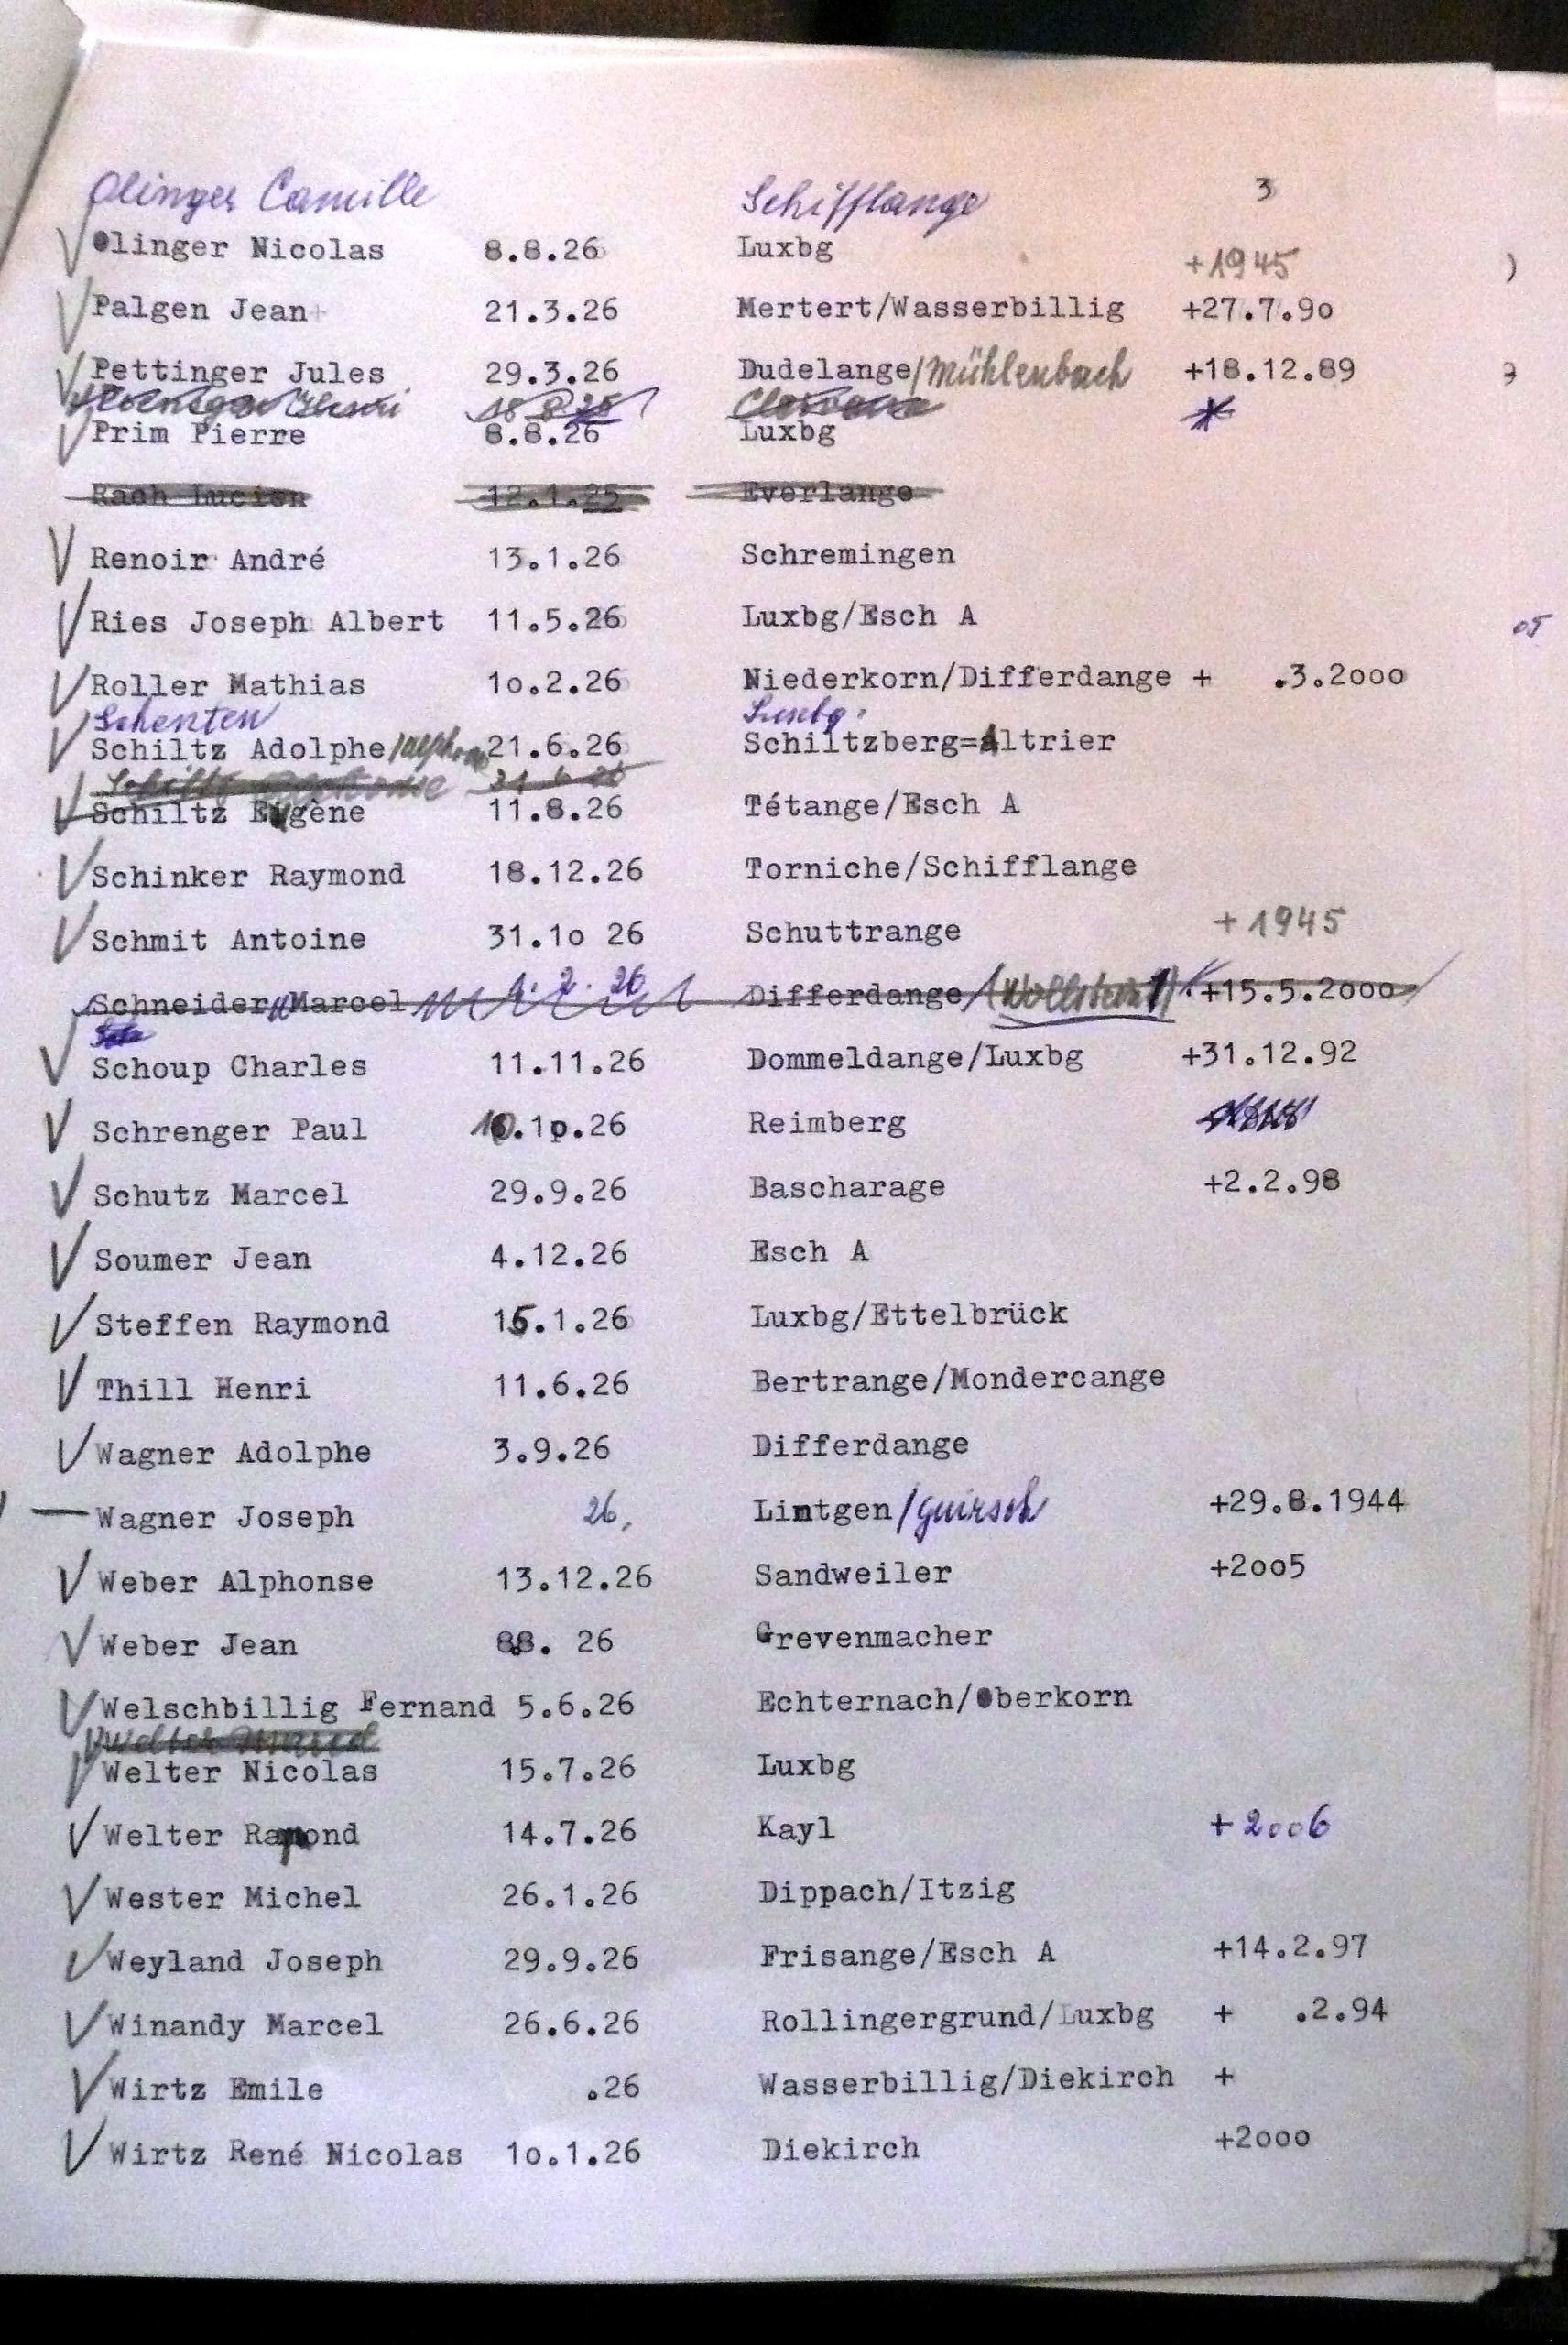 Olinger Camille Schifflange 3
Olinger Nicolas 8.8.26 Luxbg +1945
Palgen Jean+ 21.3.26 Mertert/Wasserbillig +27.7.9o
Pettinger Jules 29.3.26 Dudelange/Mühlenbach +18.12.89
Henri
Prim Pierre 8.8.26 Luxbg
Rach Lucien 12.1.25 Everlange
Renoir André 13.1.26 Schremingen
Ries Joseph Albert 11.5.26 Luxbg/Esch A
05
Roller Mathias 1o.2.26 Niederkorn/Differdange + .3.2ooo
Schenten Luxbg.
Schiltz Adolphe/ 21.6.26 Schiltzberg=Altrier
Schiltz 21 6 26
Schiltz Eugène 11.8.26 Tétange/Esch A
Schinker Raymond 18.12.26 Torniche/Schifflange
Schmit Antoine 31.1o 26 Schuttrange +1945
Schneider Marcel 2. 26 Differdange/ +15.5.2ooo
Schoup Charles 11.11.26 Dommeldange/Luxbg +31.12.92
Schrenger Paul 10.1o.26 Reimberg
Schutz Marcel 29.9.26 Bascharage +2.2.98
Soumer Jean 4.12.26 Esch A
Steffen Raymond 15.1.26 Luxbg/Ettelbrück
Thill Henri 11.6.26 Bertrange/Mondercange
Wagner Adolphe 3.9.26 Differdange
Wagner Joseph 26. Lintgen/Guirsch +29.8.1944
Weber Alphonse 13.12.26 Sandweiler +2oo5
Weber Jean 88. 26 Grevenmacher
Welschbillig Fernand 5.6.26 Echternach/Oberkorn
Welter Marcel
Welter Nicolas 15.7.26 Luxbg
Welter Raymond 14.7.26 Kayl +2006
Wester Michel 26.1.26 Dippach/Itzig
Weyland Joseph 29.9.26 Frisange/Esch A +14.2.97
Winandy Marcel 26.6.26 Rollingergrund/Luxbg + .2.94
Wirtz Emile .26 Wasserbillig/Diekirch +
Wirtz René Nicolas 1o.1.26 Diekirch +2ooo